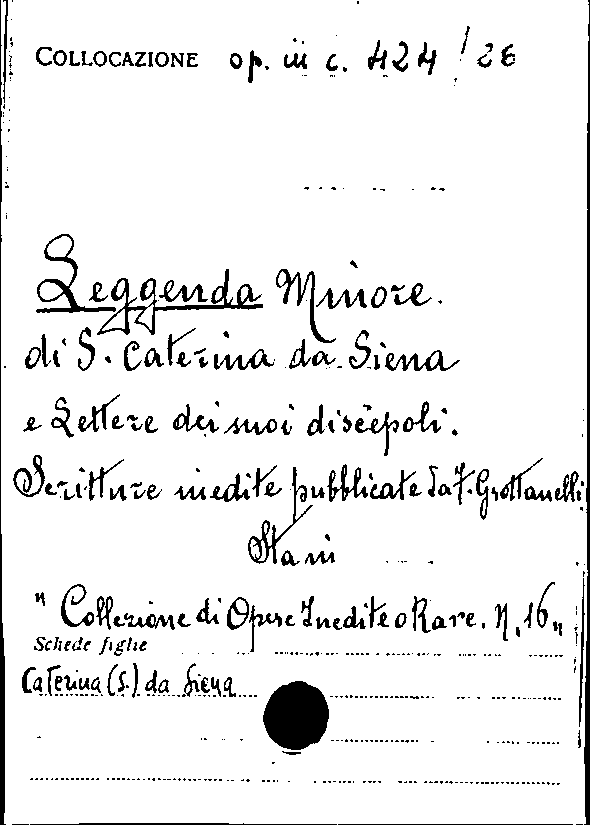 COLLOCAZIONE op. in c. 424/26
Leggenda Minore.
di S. Caterina da Siena
e Lettere dei suoi discepoli.
Scritture inedite pubblicate da F. Grottanelli
Stan in
" Collezione di Opere Inedite o Rare. N. 16 "
Schede figlie
Caterina (S.) da Siena